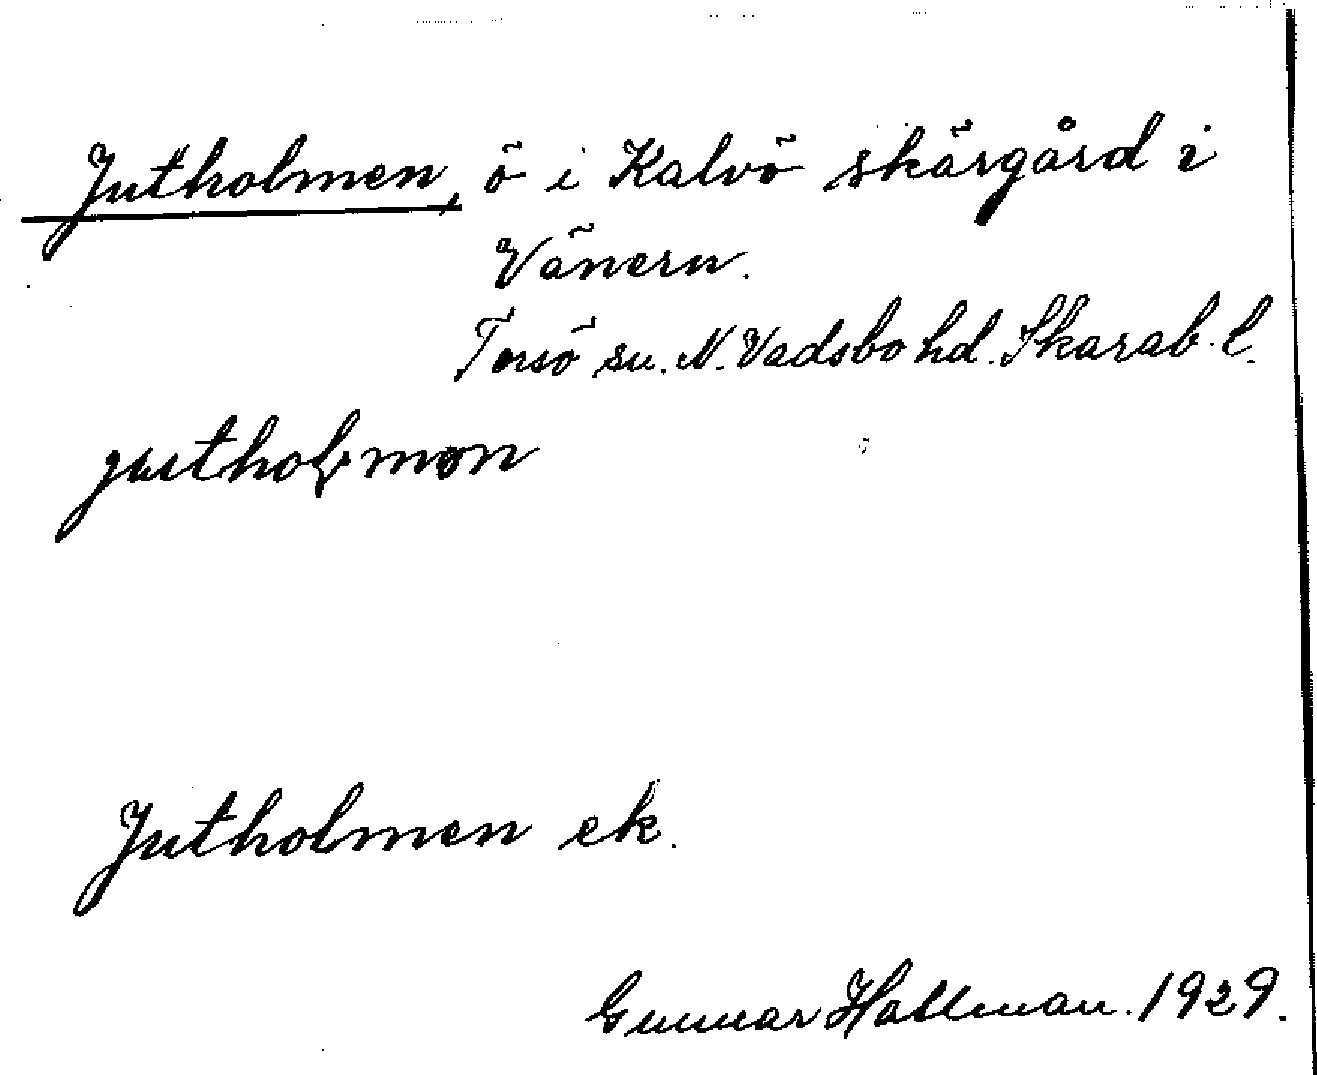 Jutholmen, ö i Kalvö skärgård i
Vänern.
Torsö sn. N. Vadsbo hd. Skarab. l.
Jutholmen ek.
Gunnar Hallman. 1929.